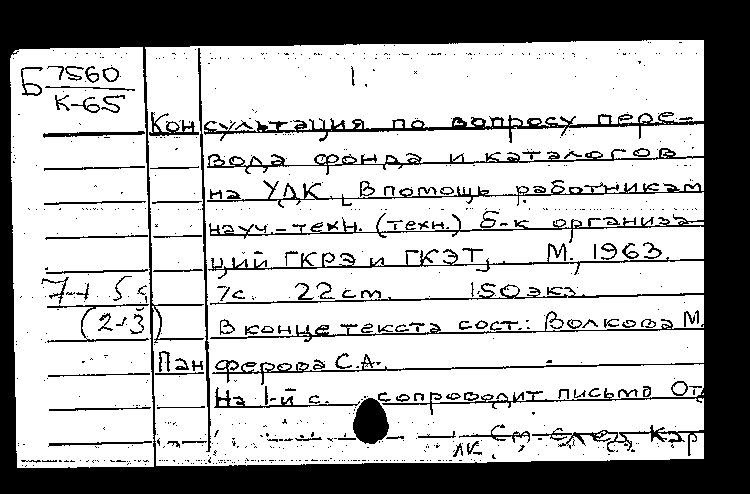 Б 7560
К-65
1.
Консультация по вопросу пере-
вода фонда и каталогов
на УДК. В помощь работникам
науч-техн. (техн.) б-к организа-
ций ГКРЭ и ГКЭТ, М., 1963.
7с. 22 cm. 150 экз.
(2+3)
В конце текста сост.: Волкова М.
Панферова С.А.
На 1-й с. сопроводит письмо Отд
См. след. кар